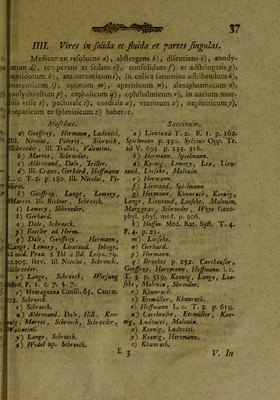 37
IIII. Vires in solida et fluida et partes singulas.
Medicamen resolvens a), abstergens b), discutiens c), anody-
num d), temperans et sedans e), consolidans f) et adstringens g),
antidotum h), antinarcoticum i), in colica saturnina adhibendum k),
narcoticum l), opiatum m), spirituosum n), alexipharmacum o),
polychrestum p), cephalicum q), ophthalmicum r), in aurium mor-
bis utile s), pectorale t), cordiale u), uterinum x), nephriticum y),
hepaticum et spleniticum z) habetur.
Moschus.
a) Geoffroy, Hermann, Ludovici,
Ill. Nicolai, Pideris, Schrock,
Schroeder, Ill. Tralles, Valentini.
b) Marrer, Schroeder.
c) Aldrovand, Dale, Triller.
d) Ill. Cranz, Gerhard, Hoffmann
l. c. T. 2. p. 150. Ill. Nicolai, Pi-
deris.
e) Geoffroy, Lange, Lemery,
Marrer. Ill. Richter, Schrock.
f) Lemery, Schroeder.
g) Gerhard.
o) Dale, Schrock.
p) Boecler ad Herm.
q) Dale, Geoffroy, Hermann,
Lange, Lemery, Lieutaud. Inbegr.
d. med. Prax. 2 Th. 2 Bd. Leipz. 79.
1205. seqv. Ill. Nicolai, Schrock,
Schroeder.
r) Lange, Schrock, Wiesung
Med. P. 1. C. 7. §. 7.
s) Montagnana Consil. 65. Canen.
12. Schrock.
t) Schrock.
u) Aldrovand, Dale, Hill, Koe-
nig, Marrer, Schrock, Schroeder,
Valentini.
y) Lange, Schrock.
z) Wedel ap. Schrock.
Succinum.
a) Lieutaud T. 2. B. 1. p. 162.
Spielmann p. 390. Sylvius Opp. Tr.
ad V. 695. p. 133. 516.
b) Hermann, Spielmann.
d) Koenig, Lemery, Leu, Lieu-
taud, Loeseke, Malouin.
e) Hermann.
f) Lieutaud, Spielmann.
g) Hermann, Khunrath, Koenig,
Lange, Lieutaud, Loeseke, Malouin,
Marggrav, Schroeder, Wyse Gazo-
phyl. phys. med. p. 906.
k) Hoffm. Med. Rat. Syst. T. 4.
P. 4. p. 21.
m) Loeseke.
n) Gerhard.
p) Hermann.
q) Brendel p. 252. Cartheuser,
Geoffroy, Hartmann, Hoffmann l. c.
T. 3. p. 519. Koenig, Lange, Loe-
seke, Malouin, Shroeder.
r) Khunrath.
s) Ettmüller, Khunrath.
t) Hoffmann l. c. T. 3. p. 619.
u) Cartheuser, Ettmüller, Koe-
nig, Ludovici, Malouin.
x) Koenig, Ludovici.
y) Koenig, Hartmann.
z) Khunrath.
E 3
V. In